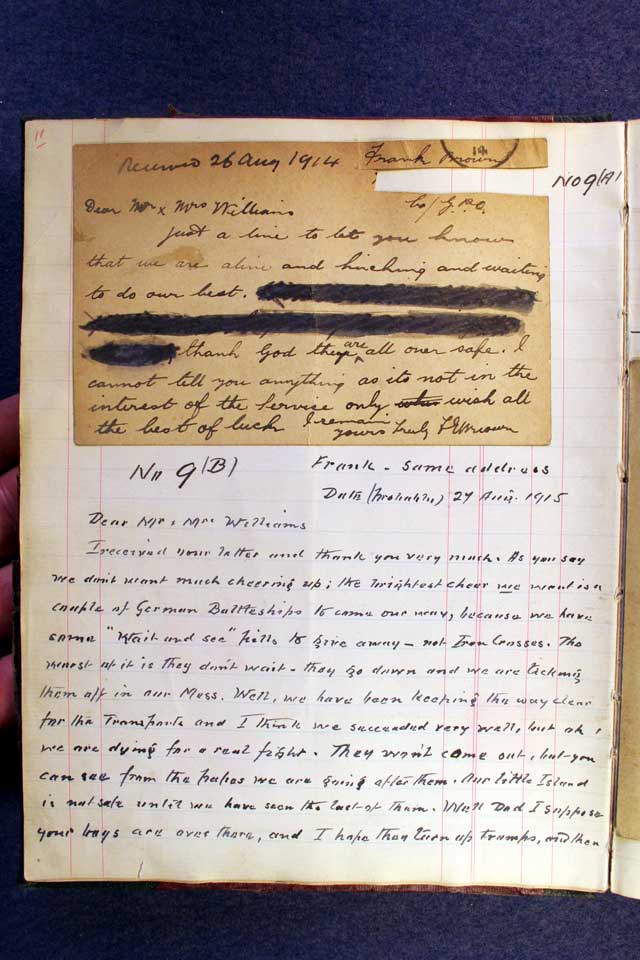 11
Received 26 Aug 1914 Frank Brown
No 9(A)
Dear Mr & Mrs Williams c/o G.P.O.
Just a line to let you know
that we are alive and kicking and waiting
to do our best.
thank God they are all over safe. I
cannot tell you anything as its not in the
interest of the Service only wish all
the best of luck I remain
yours truly
No 9(B) Frank - Same address
Date (Probable) 27 Aug. 1915
Dear Mr & Mrs Williams
I received your letter and thank you very much. As you say
we don't want much cheering up; the brightest cheer we want is a
couple of German Battleships to come our way, because we have
some "Wait and see" pills to give away - not Iron Crosses. The
worst of it is they don't wait - they go down and we are ticking
them off in our Mess. Well, we have been keeping the way clear
for the Transports and I think we succeeded very well, but oh!
we are dying for a real fight. They won't come out, but you
can see from the papers we are going after them. Our little Island
is not safe until we have seen the last of them. Well Dad I suppose
your boys are over there, and I hope they turn up trumps, and then